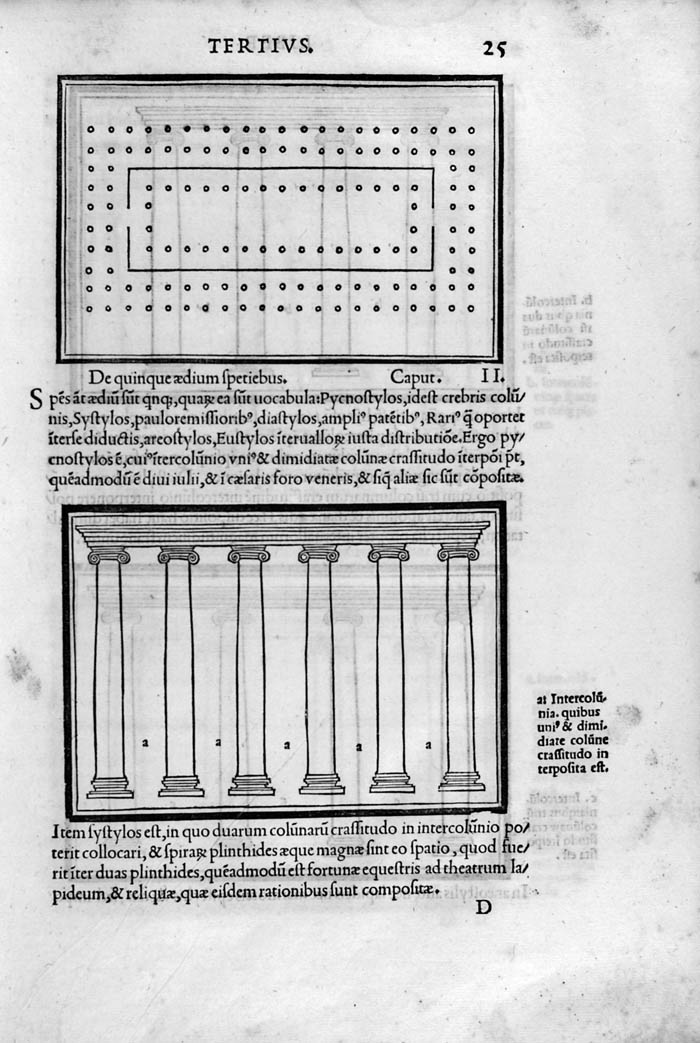 TERTIVS. 25
De quinque ædium spetiebus. Caput. II.
Spēs āt ædiū sūt qnqꝫ, quaꝝ ea sūt uocabula: Pycnostylos, idest crebris colū/
nis, Systylos, pauloremissioribꝰ, diastylos, ampliꝰ patētibꝰ, Rariꝰ q̄ oportet
īterse diductis, areostylos, Eustylos īterualloꝝ iusta distributiōe. Ergo py/
cnostylos ē, cuiꝰ ītercolūnio vniꝰ & dimidiatæ colūnæ crassitudo īterpōi pt̄,
quēadmodū ē diui iulii, & ī cæsaris foro veneris, & siq̄ aliæ sic sūt cōpositæ.
a a a a a
a: Intercolū-
nia. quibus
uniꝰ & dimi-
diate colūne
crassitudo in
terposita est.
Item systylos est, in quo duarum colūnarū crassitudo in intercolūnio po/
terit collocari, & spiraꝝ plinthides æque magnæ sint eo spatio, quod fue/
rit īter duas plinthides, quēadmodū est fortunæ equestris ad theatrum la/
pideum, & reliquæ, quæ eisdem rationibus sunt compositæ.
D